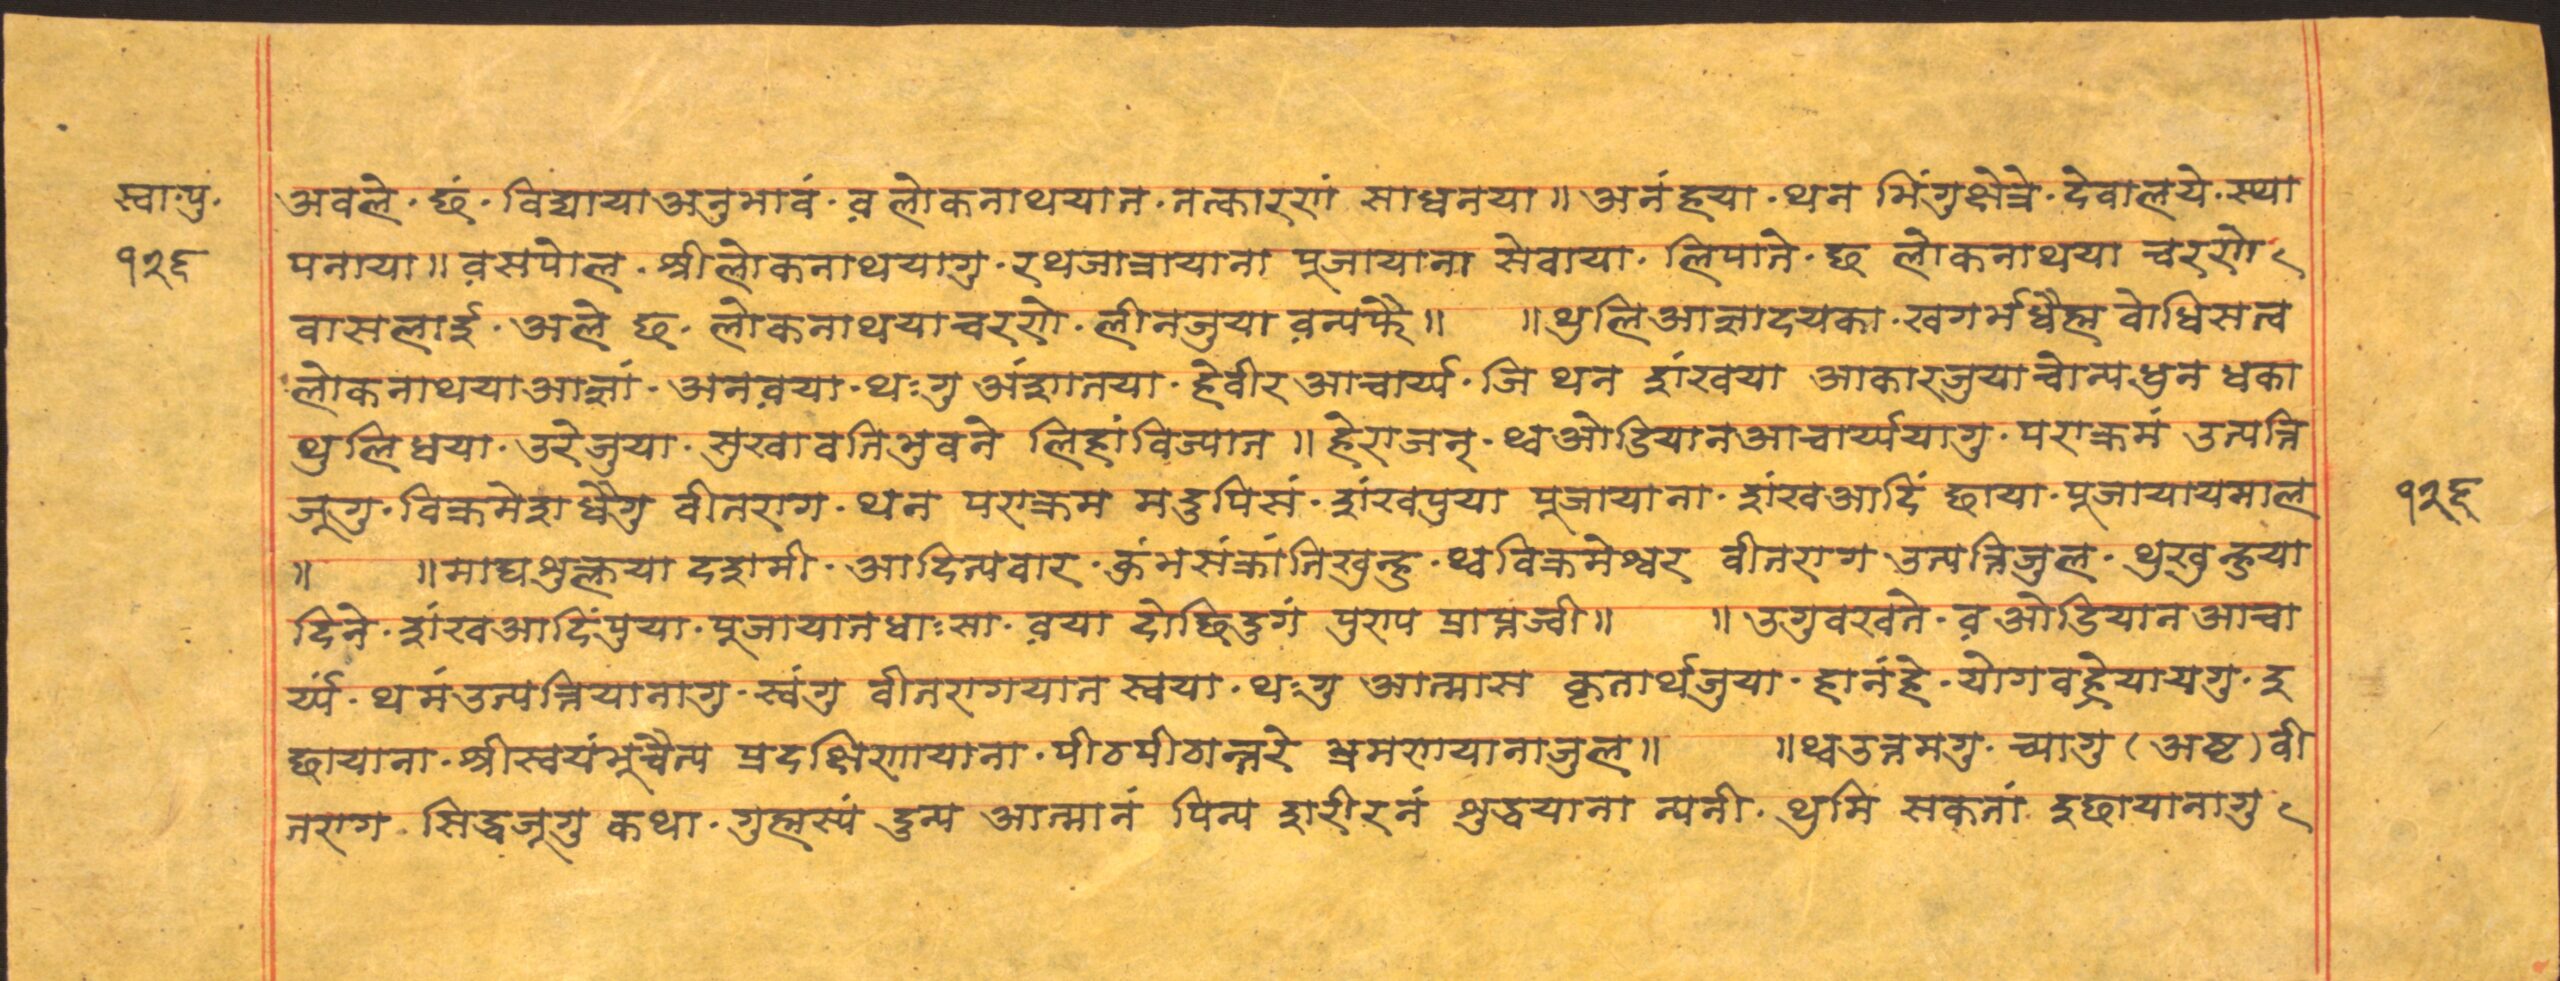 स्वा॰पु॰
१२६
अवले॰ छं॰ विद्याया अनुभावं॰ व़ लोकनाथयात॰ तत्कारणं साधनया ॥ अनंह्नया॰ थन भिंगु क्षेत्रे॰ देवालये॰ स्था
पनाया ॥ व़सपोल॰ श्रीलोकनाथयागु॰ रथजात्रायाना पूजायाना सेवाया॰ लिपाते॰ छ लोकनाथया चरणे
वासलाई॰ अले छ॰ लोकनाथयाचरणे॰ लीनजुया व़न्यफै ॥ ॥ थुलि आज्ञादयका॰ खगर्भधैह्म बोधिसत्व
लोकनाथयाआज्ञां॰ अनव़या॰ थःगु अंशातया॰ हेवीर आचार्य्य॰ जि थन शंखया आकारजुयाचोन्यधुन धका
थुलिधया॰ उरेजुया॰ सुखावतिभुवने लिहांविज्यात ॥ हेराजन्॰ थ्वओडियानआचार्य्ययागु॰ पराक्रमं उत्पत्ति
जूगु॰ विक्रमेशधैगु वीतराग॰ थन पराक्रम मदुपिसं॰ शंखपुया पूजायाना॰ शंखआदिं छाया॰ पूजायायमाल
॥ ॥ माघशुक्लया दशमी॰ आदित्यवार॰ कुंभसंक्रांतिखुन्हु॰ थ्वविक्रमेश्वर वीतराग उत्पत्तिजुल॰ थुखुन्हुया
दिने॰ शंखआदिंपुया॰ पूजायातधाःसा॰ व़या दोछिदुगं पुराप प्राप्तज्वी ॥ ॥ उगुवखते॰ व़ओडियानआचा
र्य्यं॰ थमंउत्पत्तियानागु॰ स्वंगु वीतरागयात स्वया॰ थःगु आत्मास कृतार्थजुया॰ हानंहे॰ योगवह्रेयायगु॰ इ
छायाना॰ श्रीस्वयंभूचैत्य प्रदक्षिणायाना॰ पीठपीठान्तरे भ्रमणयानाजुल ॥ ॥ थ्वउत्तमगु॰ च्यागु (अष्ट) वी
तराग॰ सिद्धजूगु कथा॰ गुह्मस्यं दुन्य आत्मानं पिन्य शरीरनं शुद्धयाना न्यनी॰ थुमि सकतां इछायानागु
१२६